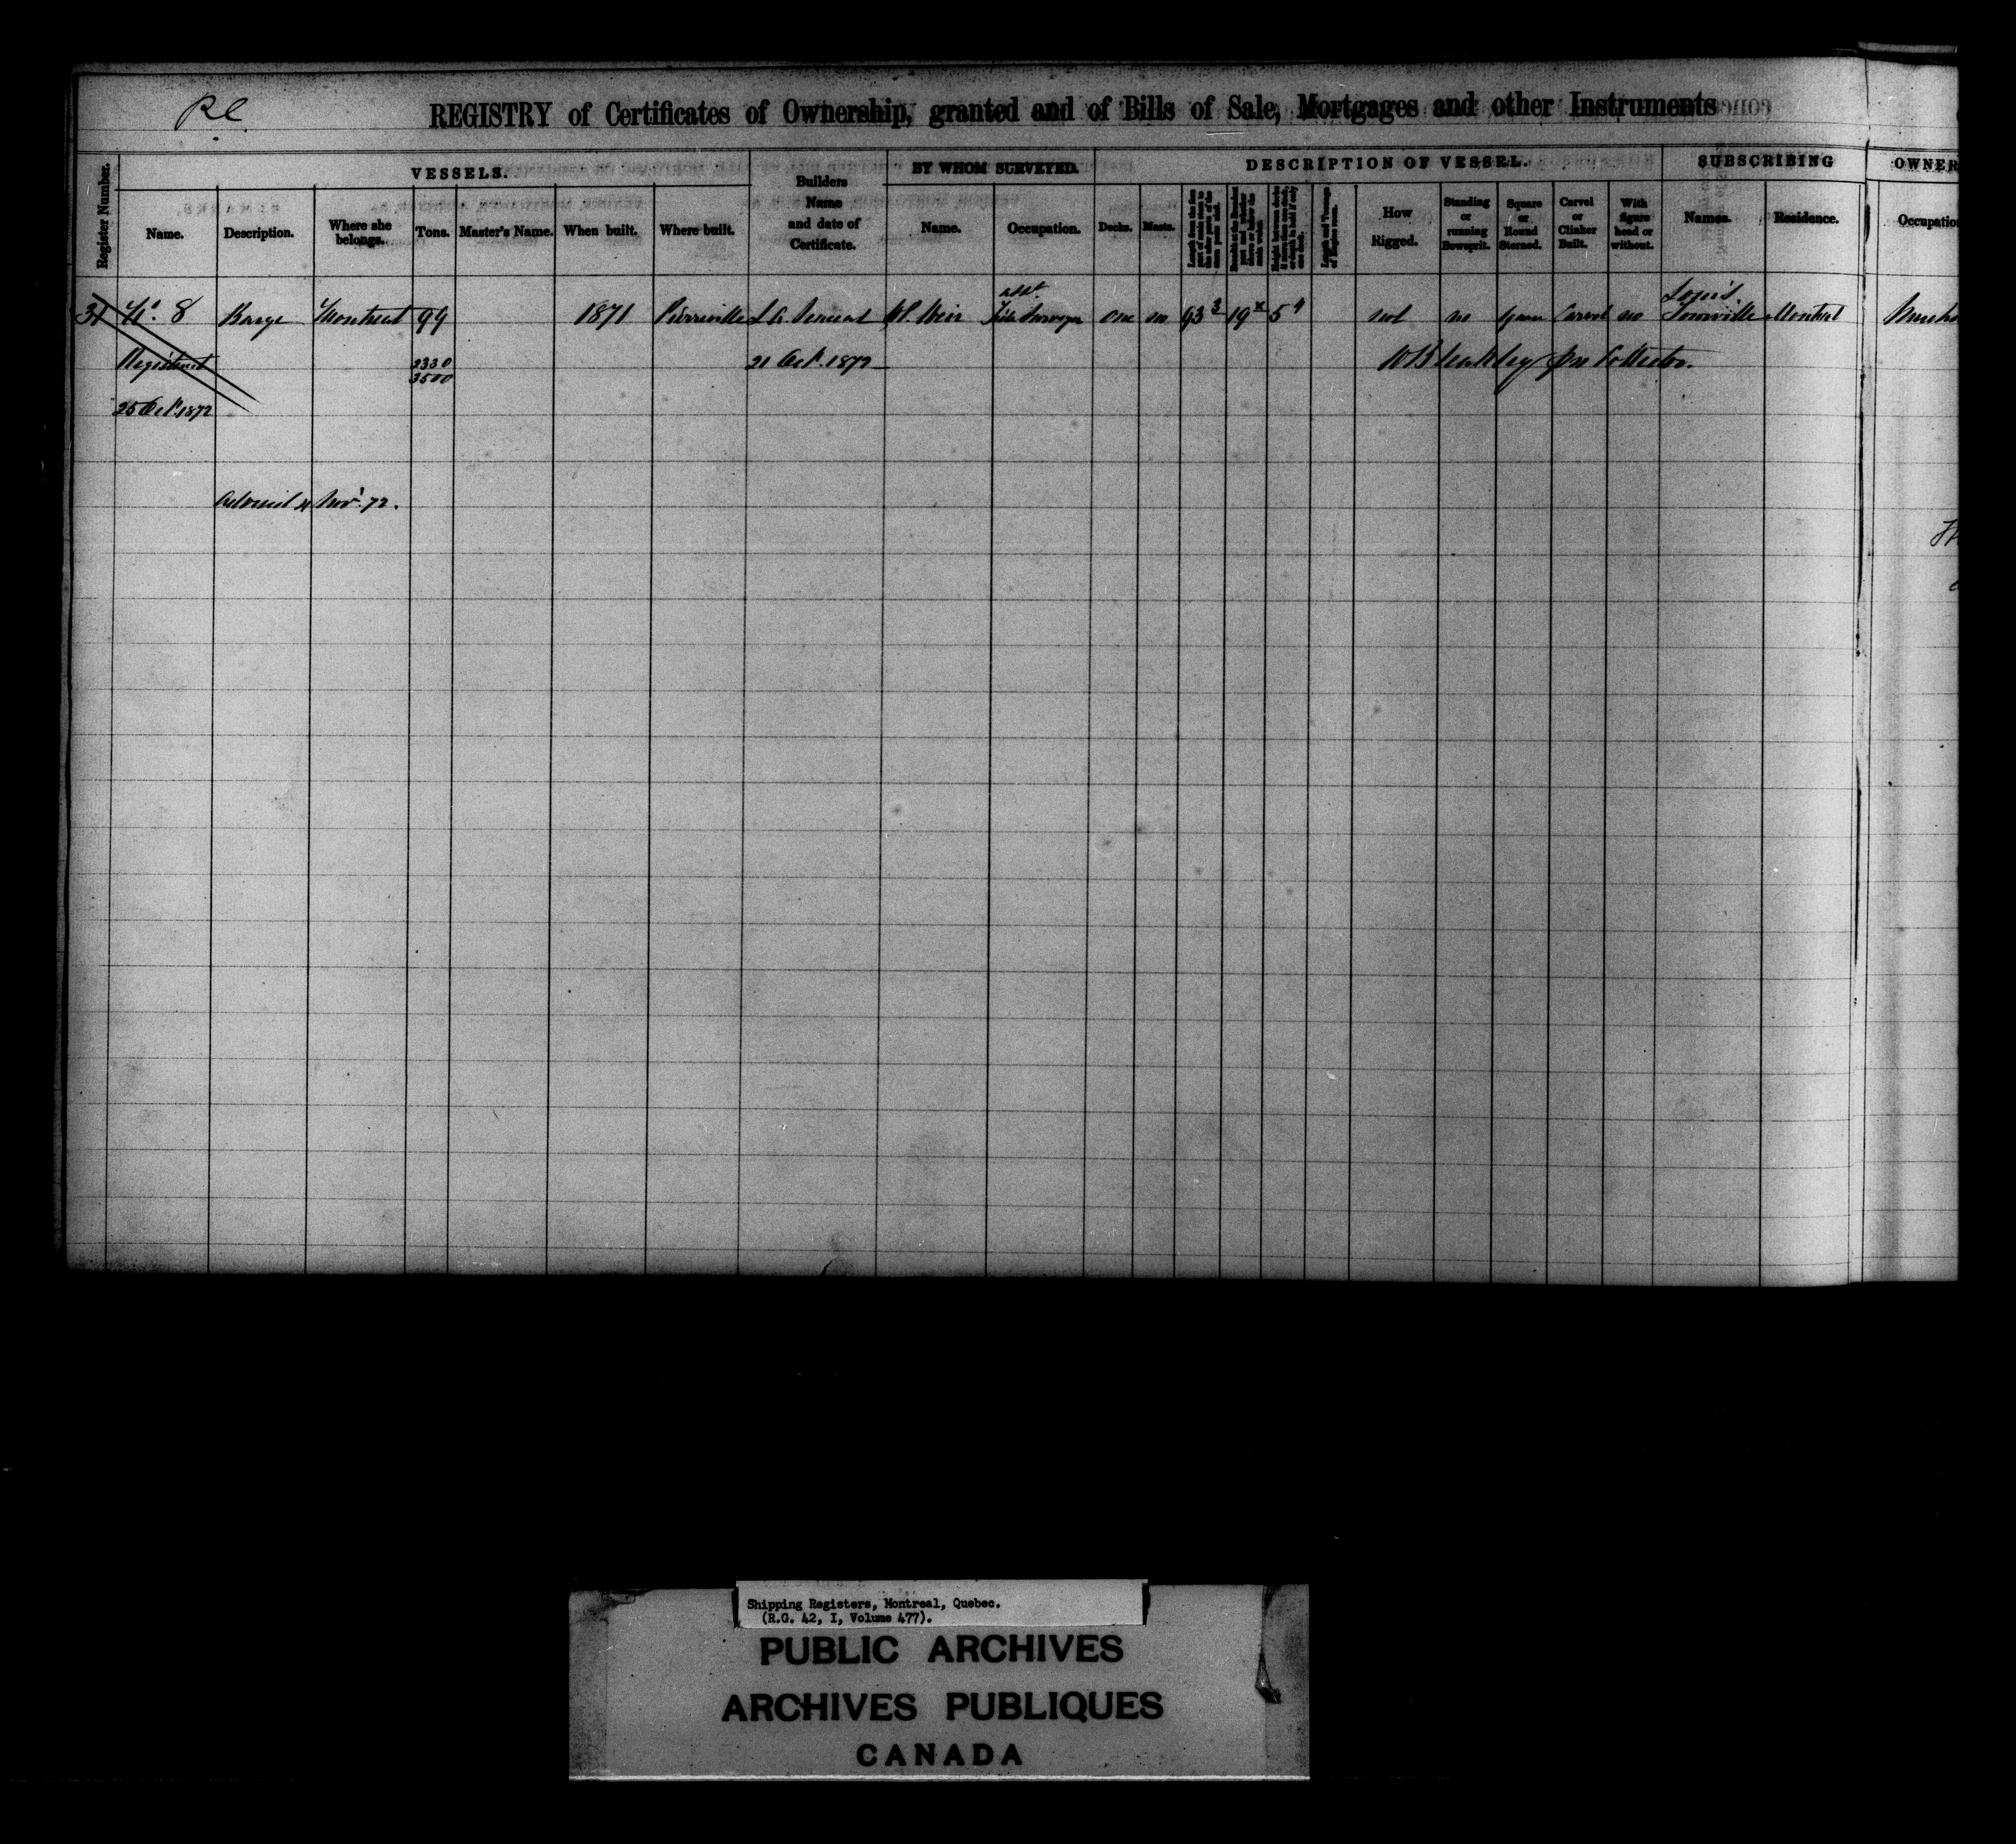 Rl
REGISTRY of Certificates of Ownership, granted and of Bills of Sale, Mortgages and other Instruments
Register Number.
VESSELS.
Name.
Description.
Where she belongs.
Tons.
Master's Name.
When built.
Where built.
Builders Name and date of Certificate.
BY WHOM SURVEYED.
Name.
Occupation.
DESCRIPTION OF VESSEL.
Decks.
Masts.
How Rigged.
Standing or running Bowsprit.
Square or Round Sterned.
Carvel or Clinker Built.
With figure head or without.
SUBSCRIBING
Names.
Residence.
OWNER
Occupation
31 No. 8 Barge Montreal 99 1871 Pierreville W. Weir one no 93 3 19 x 5 4 not no Carvel no Louis Montreal
Registered 2330 21 Oct. 1872 Collector.
3500
25 Oct. 1872
4 Nov. 72.
Shipping Registers, Montreal, Quebec.
(R.G. 42, I, Volume 477).
PUBLIC ARCHIVES
ARCHIVES PUBLIQUES
CANADA